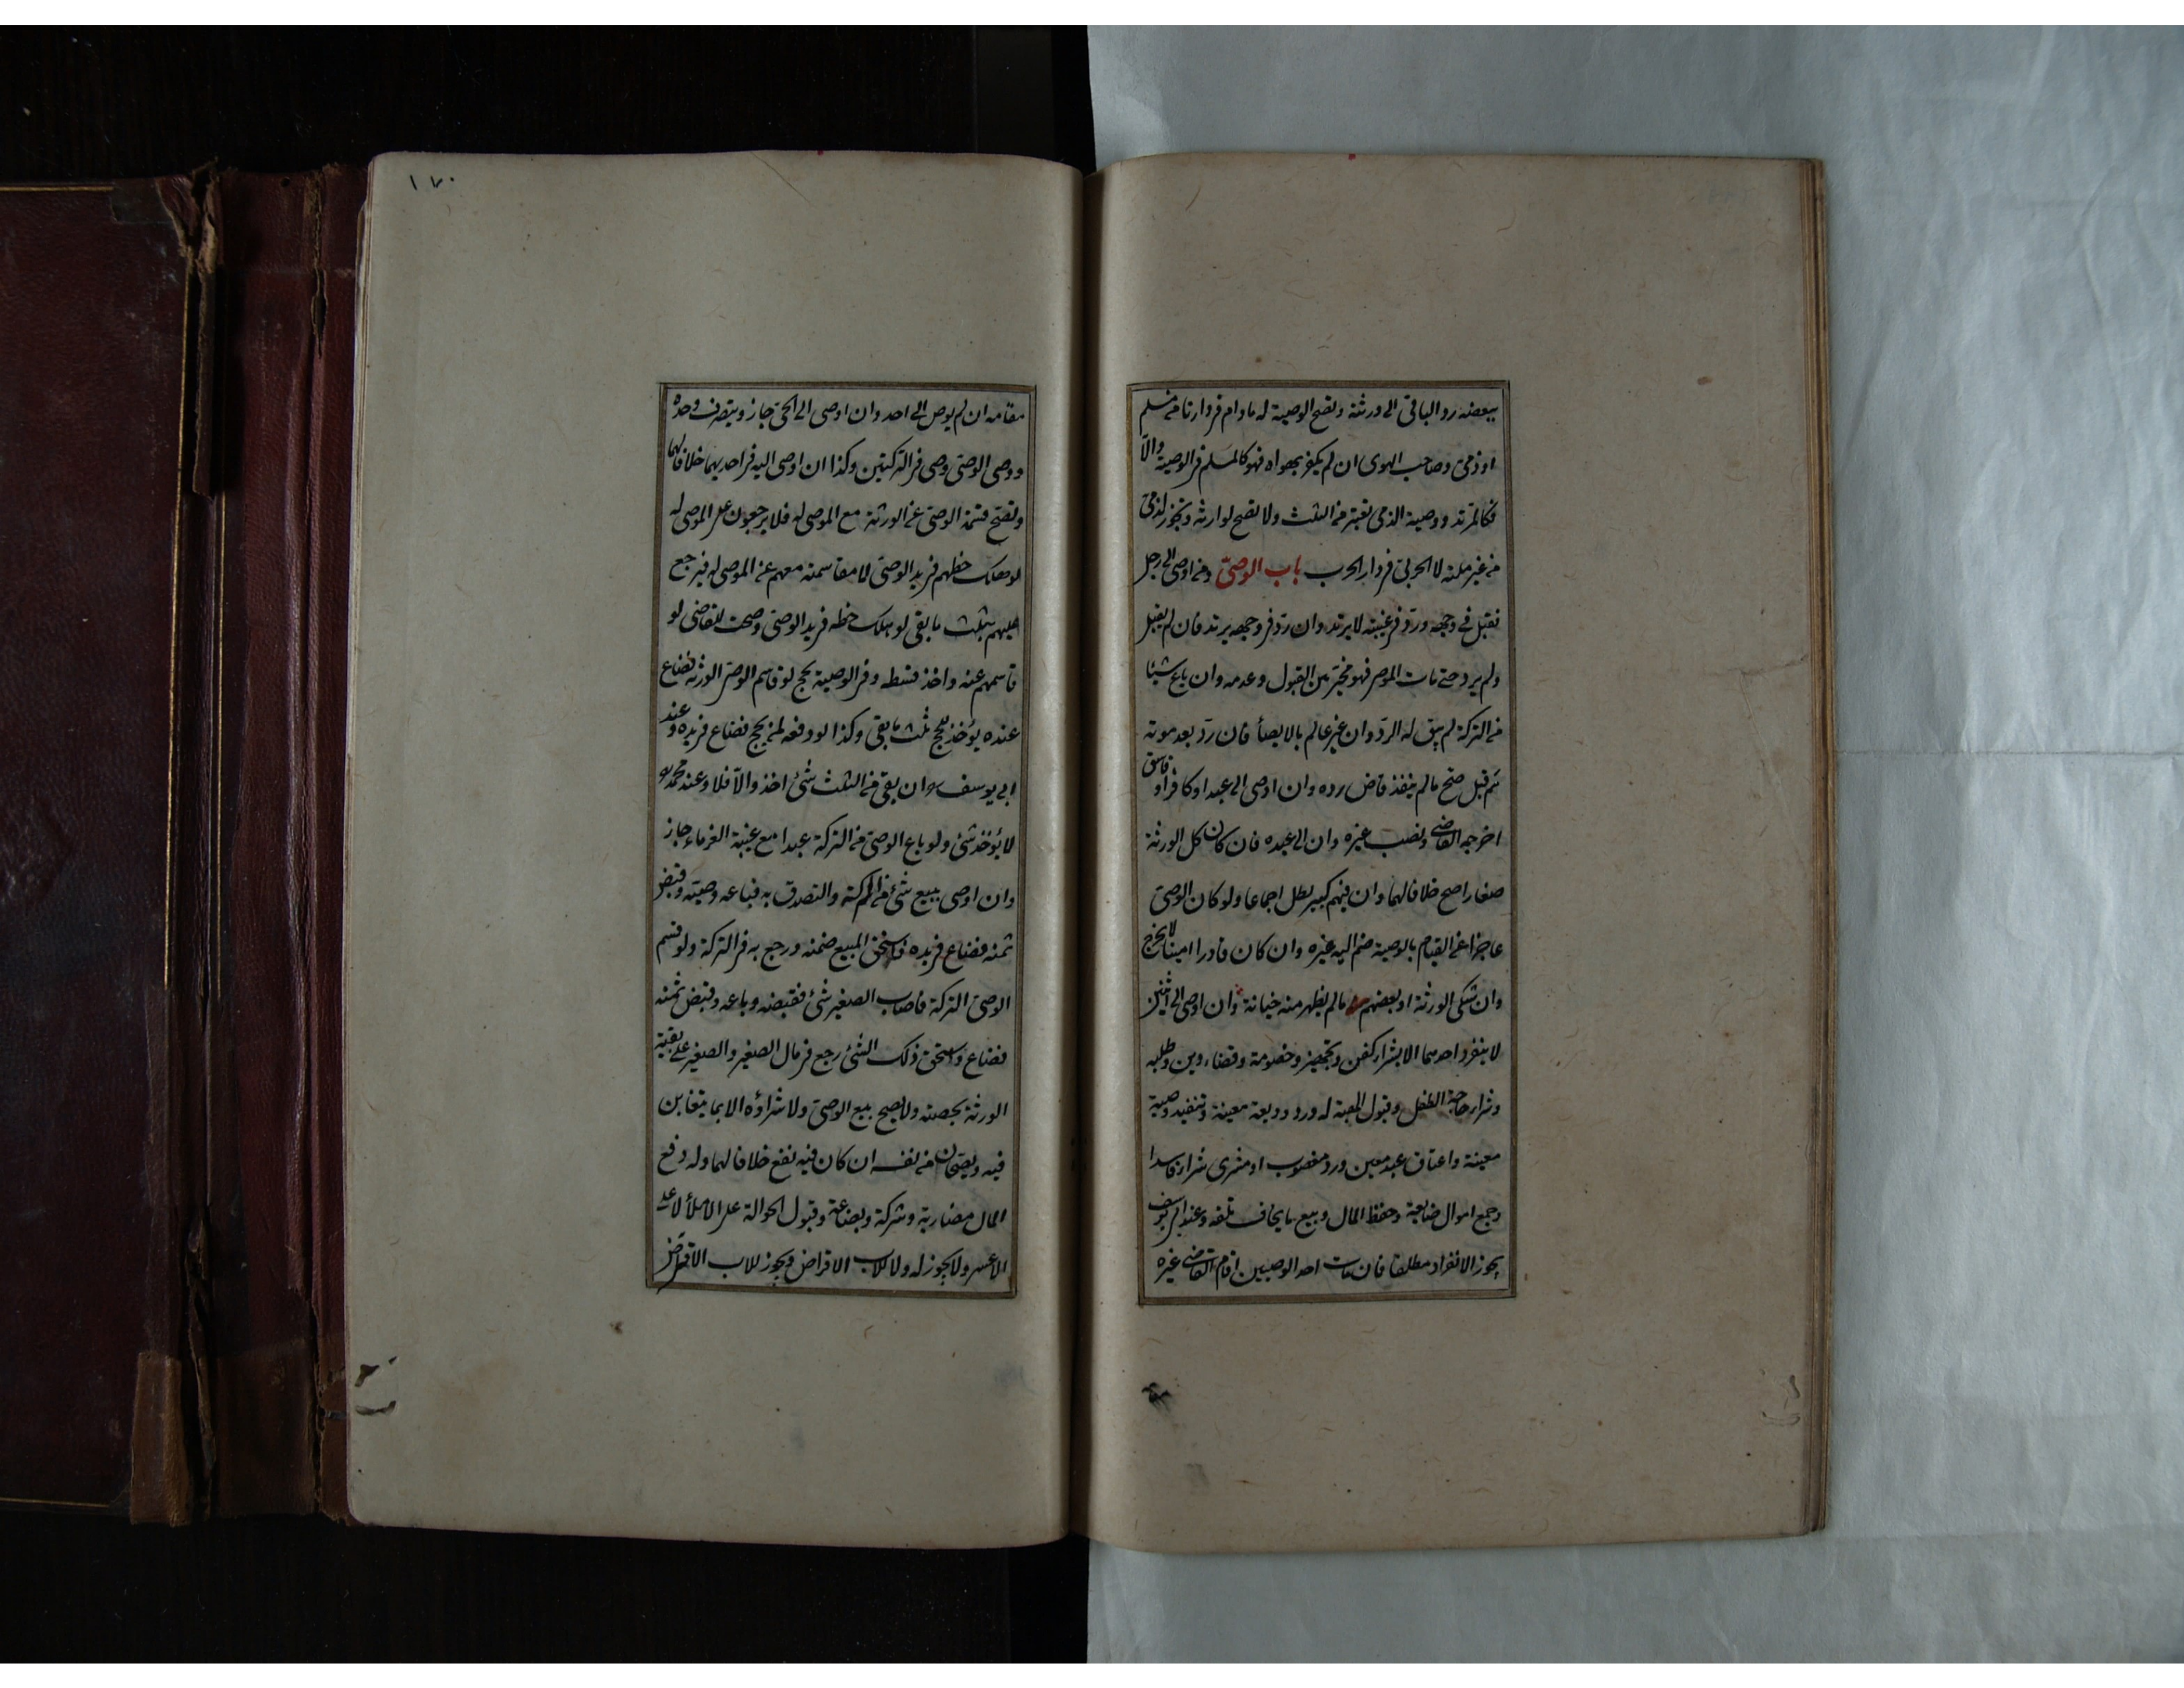 ببعضه رد الباقي الى ورثته وتصح الوصية له مادام في دارنا من مسلم
او ذمي وصاحب الهوى ان لم يكفر بهواه فهو كالمسلم في الوصية والا
فكالمرتد ووصية الذمي تعتبر من الثلث ولا تصح لوارثه وتجوز لذمي
من غير ملته لا لحربي في دار الحرب باب الوصي ومن اوصى الى رجل
فقبل في وجهه ورد في غيبته لا يرتد وان رد في وجهه يرتد فان لم يقبل
ولم يرد حتى مات الموصي فهو مخير بين القبول وعدمه وان باع شيئا
من التركة لم يبق له الرد وان غير عالم بالايصاء فان رد بعد موته
ثم قبل صح مالم ينفذ قاض رده وان اوصى الى عبد او كافر او فاسق
اخرجه القاضي ونصب غيره وان الى عبده فان كان كل الورثة
صغارا صح خلافا لهما وان فيهم كبير بطل اجماعا ولو كان الوصي
عاجزا عن القيام بالوصية ضم اليه غيره وان كان قادرا امينا لا يخرج
وان شكى الورثة او بعضهم مالم يظهر منه خيانة وان اوصى الى اثنين
لا ينفرد احدهما الا بشراء كفن وتجهيز وخصومة وقضاء دين وطلبه
وشراء حاجة الطفل وقبول الهبة له ورد وديعة معينة وتنفيذ وصية
معينة واعتاق عبد معين ورد مغصوب او مشرى شراء فاسدا
وجمع اموال ضايعة وحفظ المال وبيع ما يخاف تلفه وعند ابي يوسف
يجوز الانفراد مطلقا فان مات احد الوصيين اقام القاضي غيره
مقا
١٧٠
مقامه ان لم يوص الى احد وان اوصى الى الحي جاز ويتصرف وحده
ووصى الوصي وصى في التركتين وكذا ان اوصى اليه في احديهما خلافا لهما
وتصح قسمة الوصي عن الورثة مع الموصى له فلا يرجعون على الموصى له
لو هلك حظهم في يد الوصي لا مقاسمته معهم عن الموصى له فيرجع
عليهم بثلث ما بقى لو هلك حظه في يد الوصي وصحت للقاضي لو
قاسمهم عنه واخذ قسطه وفي الوصية بحج لو قاسم الوصي الورثة فضاع
عنده يؤخذ للحج ثلث ما بقى وكذا لو دفعه لمن يحج فضاع في يده وعند
ابي يوسف ره ان بقى من الثلث شئ اخذ والا فلا وعند محمد ره
لا يؤخذ شئ ولو باع الوصي من التركة عبدا مع غيبة الغرماء جاز
وان اوصى ببيع شئ من التركة والتصدق به فباعه وصيه وقبض
ثمنه فضاع في يده فاستحق المبيع ضمنه ورجع به في التركة ولو قسم
الوصي التركة فاصاب الصغير شئ فقبضه وباعه وقبض ثمنه
فضاع واستحق ذلك الشئ رجع في مال الصغير والصغير على بقية
الورثة بحصته ولا يصح بيع الوصي ولا شراؤه الا بما يتغابن
فيه ويصحان من نفسه ان كان فيه نفع خلافا لهما وله دفع
المال مضاربة وشركة وبضاعة وقبول الحوالة على الاملأ لا على
الاعسر ولا يجوز له ولا للاب الاقراض ويجوز للاب الاقتراض